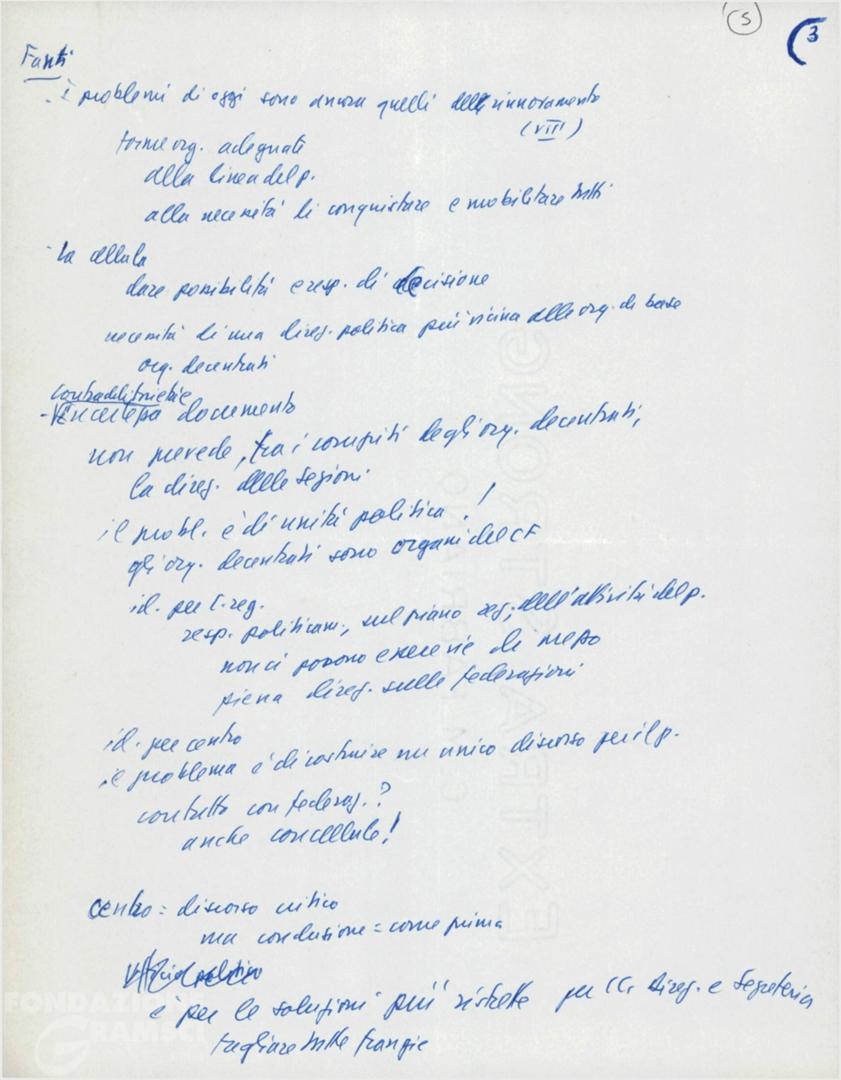 5
3
Fanti
- i problemi di oggi sono ancora quelli del rinnovamento
(VIII)
forme org. adeguati
alla linea del p.
alla necessità di conquistare e mobilitare tutti
- La cellula
dare possibilità e resp. di decisione
necessità di una direz. politica più vicina alle org. di base
org. decentrati
contraddittorietà
- documento
non prevede, tra i compiti degli org. decentrati,
la direz. delle sezioni
il probl. è di unità politica!
gli org. decentrati sono organi del CF
id. per C. reg.
resp. politicam., sul piano reg., dell'attività del p.
non ci possono essere vie di mezzo
piena direz. sulle federazioni
id. per centro
il problema è di costruire un unico discorso per il p.
contatto con federaz.?
anche con cellule!
centro = discorso critico
ma conclusione = come prima
Ufficio politico
è per le soluzioni più ristrette per CC, Direz. e Segreteria
tagliare tutte frangie
EXTRA STRONG
FONDAZIONE
GRAMSCI